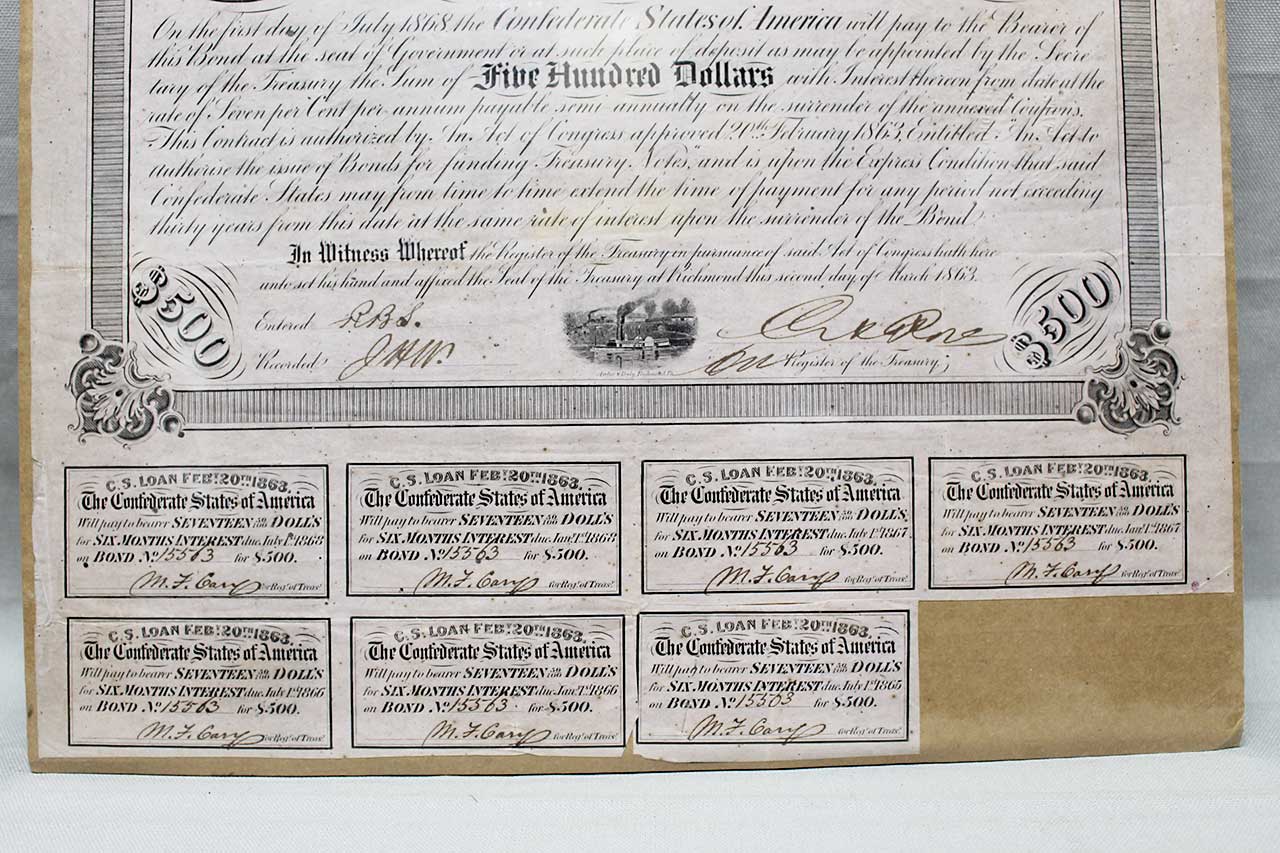 On the first day of July 1868, the Confederate States of America will pay to the Bearer of
this Bond at the seat of Government or at such place of deposit as may be appointed by the Secre
tary of the Treasury the Sum of Five Hundred Dollars with Interest thereon from date at the
rate of Seven per Cent per annum payable semi-annually on the surrender of the annexed Coupons.
This Contract is authorized by An Act of Congress approved 20th February 1863, Entitled "An Act to
authorise the issue of Bonds for funding Treasury Notes," and is upon the Express Condition that said
Confederate States may from time to time extend the time of payment for any period not exceeding
thirty years from this date at the same rate of interest upon the surrender of the Bond.
In Witness Whereof the Register of the Treasury in pursuance of said Act of Congress hath here
unto set his hand and affixed the Seal of the Treasury at Richmond this second day of March 1863.
$500
$500
Entered R.B.S.
Recorded J.H.W.
Register of the Treasury;
C.S. LOAN FEBY. 20TH 1863,
The Confederate States of America
Will pay to bearer SEVENTEEN 50/100 DOLL'S
for SIX MONTHS INTEREST due July 1st 1868
on BOND No. 15563 for $500.
M. F. Cary for Regr. of Treasy.
C.S. LOAN FEBY. 20TH 1863,
The Confederate States of America
Will pay to bearer SEVENTEEN 50/100 DOLL'S
for SIX MONTHS INTEREST due Jany. 1st 1868
on BOND No. 15563 for $500.
M. F. Cary for Regr. of Treasy.
C.S. LOAN FEBY. 20TH 1863,
The Confederate States of America
Will pay to bearer SEVENTEEN 50/100 DOLL'S
for SIX MONTHS INTEREST due July 1st 1867
on BOND No. 15563 for $500.
M. F. Cary for Regr. of Treasy.
C.S. LOAN FEBY. 20TH 1863,
The Confederate States of America
Will pay to bearer SEVENTEEN 50/100 DOLL'S
for SIX MONTHS INTEREST due Jany. 1st 1867
on BOND No. 15563 for $500.
M. F. Cary for Regr. of Treasy.
C.S. LOAN FEBY. 20TH 1863,
The Confederate States of America
Will pay to bearer SEVENTEEN 50/100 DOLL'S
for SIX MONTHS INTEREST due July 1st 1866
on BOND No. 15563 for $500.
M. F. Cary for Regr. of Treasy.
C.S. LOAN FEBY. 20TH 1863,
The Confederate States of America
Will pay to bearer SEVENTEEN 50/100 DOLL'S
for SIX MONTHS INTEREST due Jany. 1st 1866
on BOND No. 15563 for $500.
M. F. Cary for Regr. of Treasy.
C.S. LOAN FEBY. 20TH 1863,
The Confederate States of America
Will pay to bearer SEVENTEEN 50/100 DOLL'S
for SIX MONTHS INTEREST due July 1st 1865
on BOND No. 15563 for $500.
M. F. Cary for Regr. of Treasy.